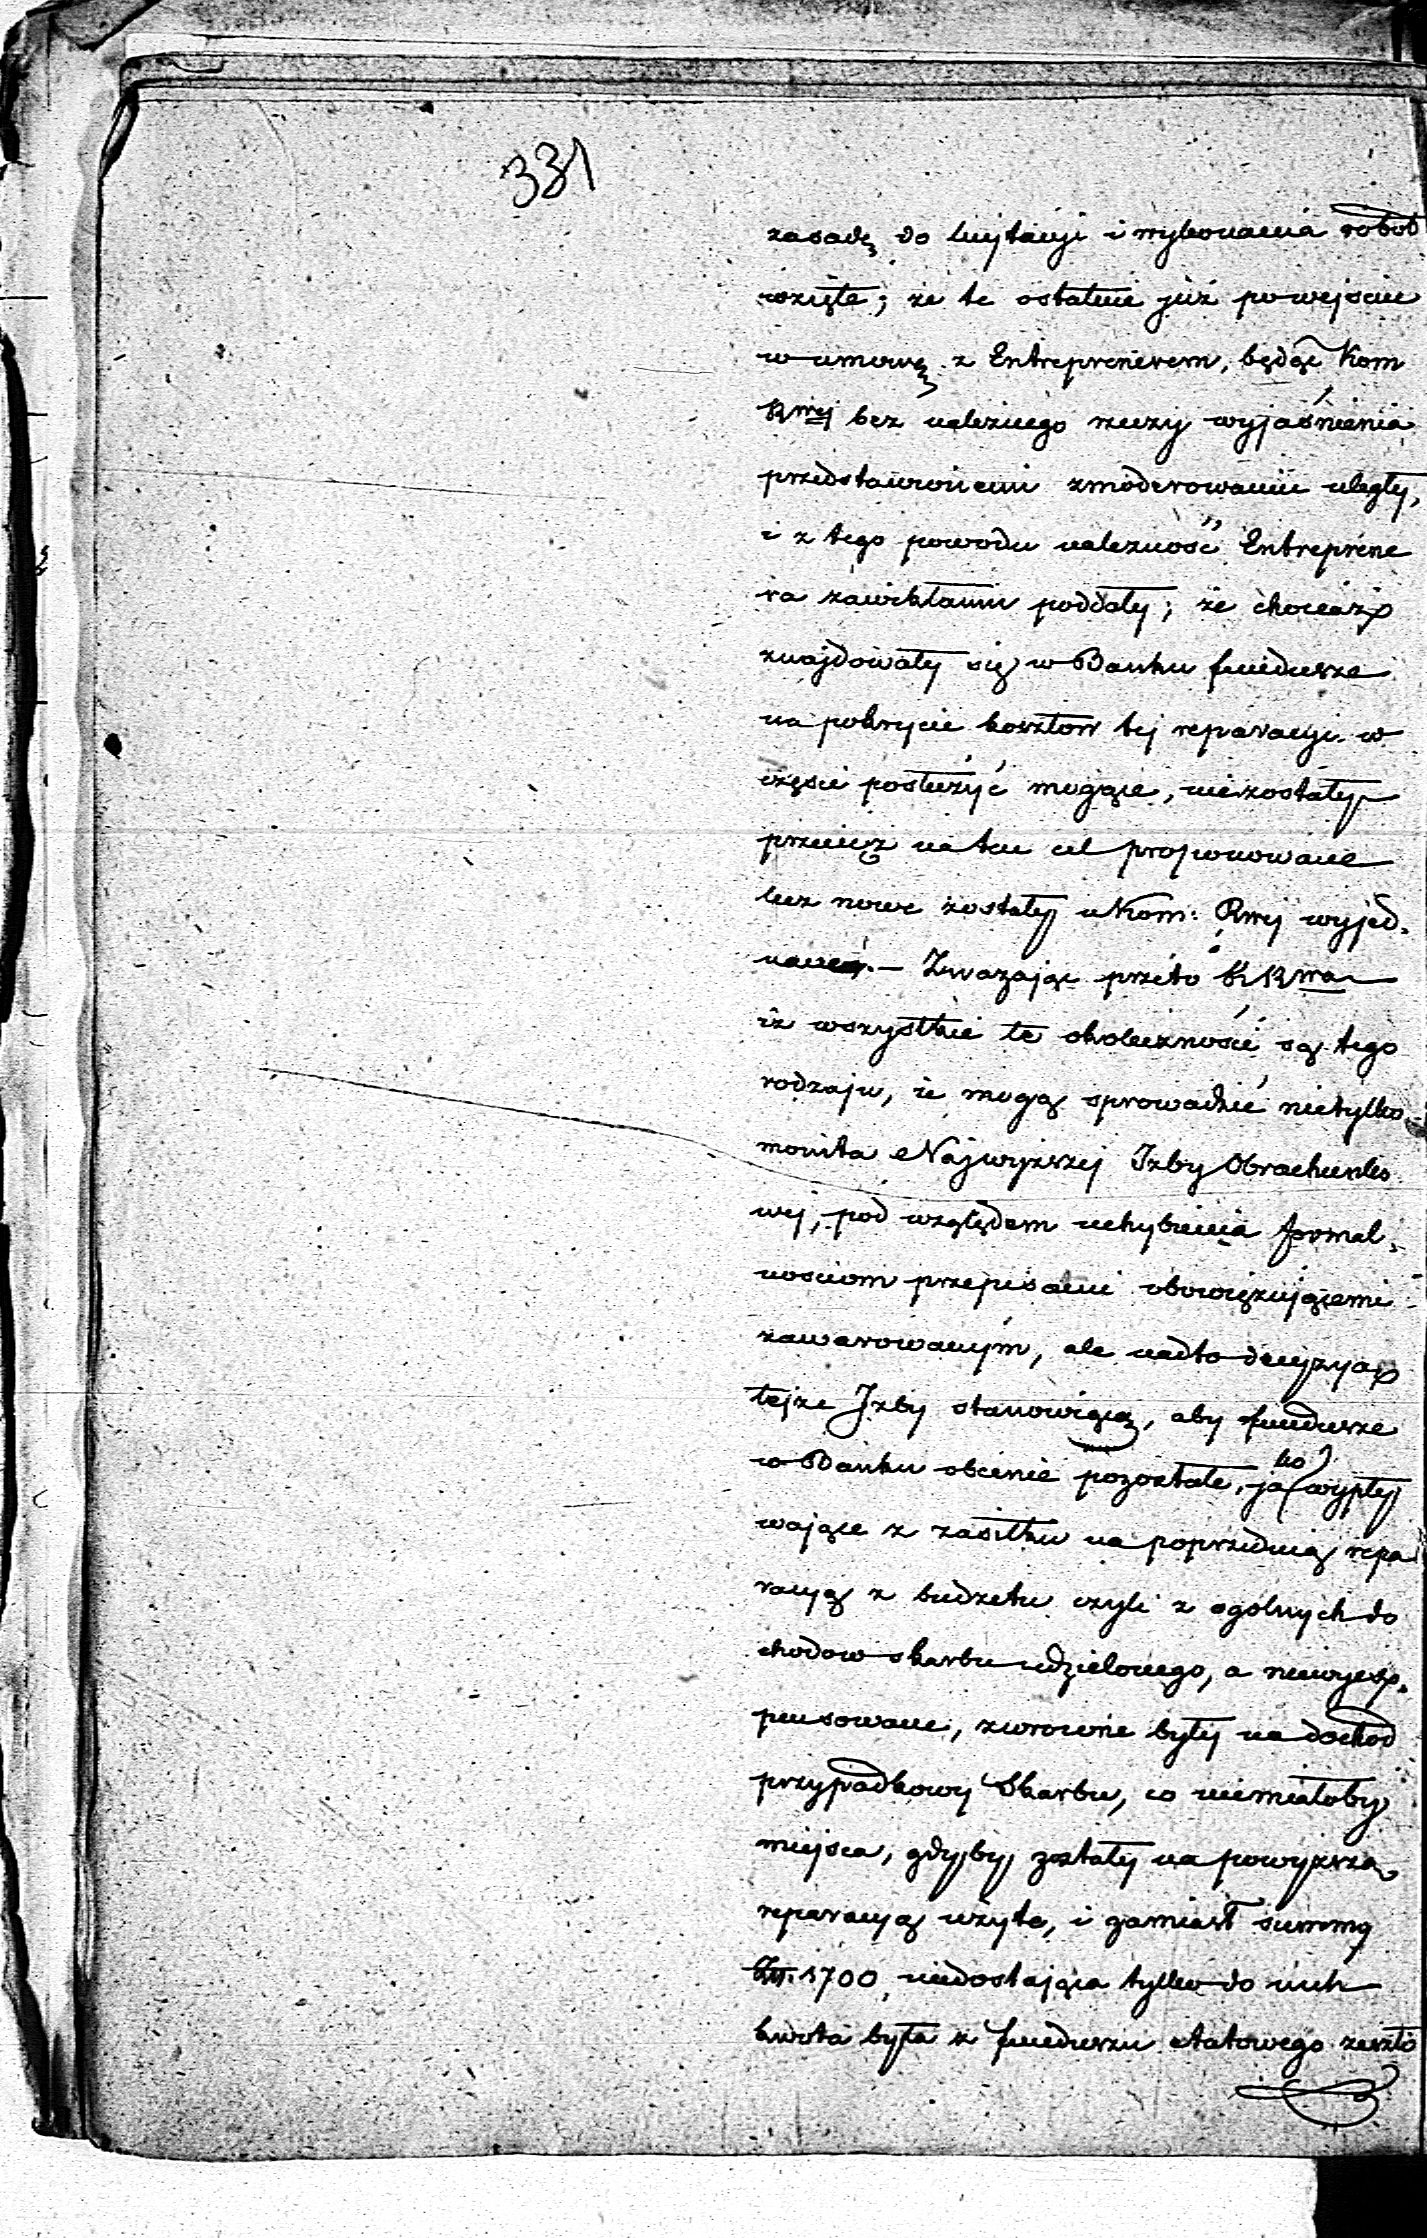 331
zasadę do licytacyi i wykonania robot
wzięte; że te ostatnie już po wejściu
w umowę z Entreprenerem, będąc Kom
Rwej bez należnego rzeczy wyjaśnienia
przedstawionemi zmoderowaniu uległy,
i z tego powodu należność Entreprene
ra zawikłaniu poddały; że chociaż
znajdowały się w Banku fundusze
na pokrycie kosztow tej reparacyi w
części posłużyć mogące, niezostały
przecież na ten cel proponowane
lecz nowe zostały u Kom: Rwej wyjed-
nane.– Zważając przeto KRwa
iż wszystkie te okoliczności są tego
rodzaju, że mogą sprowadzić nietylko
monita Najwyższej Izby Obrachunko
wej, pod względem uchybienia formal-
nosciom przepisami obowiązującemi
zawarowanym, ale nadto decyzya
tejże Izby stanowiącą, aby fundusze
w Banku obecnie pozostałe, jako wypły
wające z zasiłku na poprzednią repa
racyą z budżetu czyli z ogólnych do
chodow skarbu udzielonego, a niewyex-
pensowane, zwrócone były na dochod
przypadkowy Skarbu, co niemiałoby
miejsca, gdyby zostały na powyższą
reparacyą użyte, i zamiast summy
1700 niedostająca tylko do nich
kwota była z funduszu etatowego zeszło